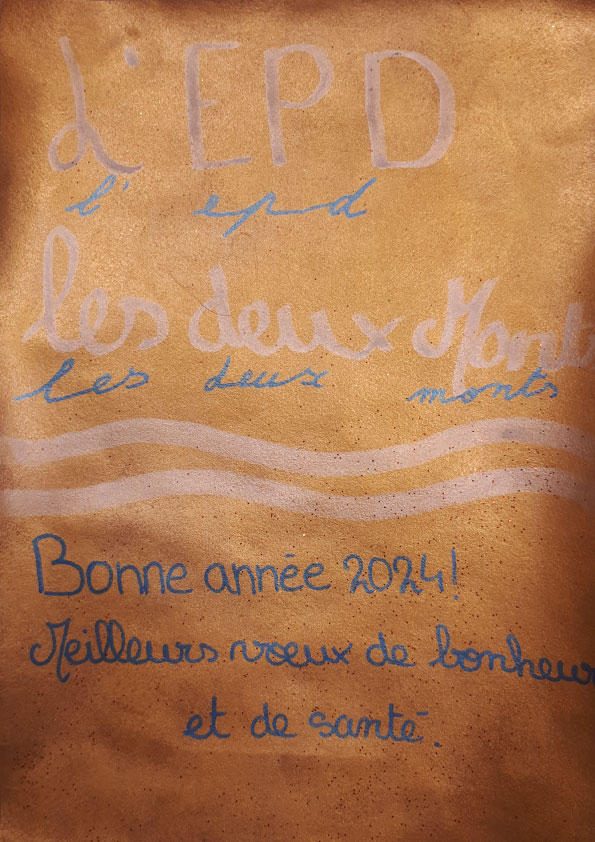 L'EPD
l' epd
les deux Monts
les deux monts
Bonne année 2024!
Meilleurs vœux de bonheur
et de santé.